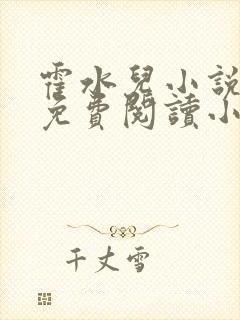 霍水兒小說
免費閱讀小
千丈雪